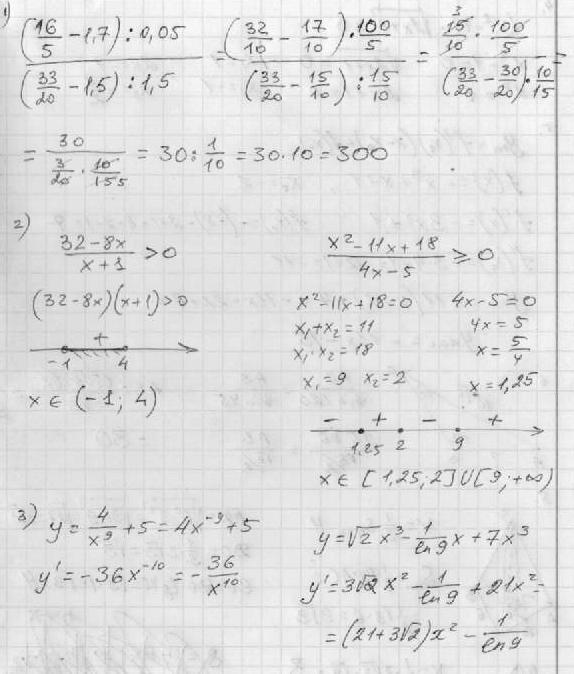 1) ((16/5 − 1,7) : 0,05) / ((33/20 − 1,5) : 1,5) = ((32/10 − 17/10) · 100/5) / ((33/20 − 15/10) : 15/10) = (15/10 · 100/5) / ((33/20 − 30/20) · 10/15) =
= 30 / (3/20 · 10/15 5) = 30 : 1/10 = 30 · 10 = 300
2)
(32 − 8x)/(x + 1) > 0
(32 − 8x)(x + 1) > 0
+
−1 4
x ∈ (−1; 4)
(x² − 11x + 18)/(4x − 5) ⩾ 0
x² − 11x + 18 = 0 4x − 5 = 0
x₁ + x₂ = 11 4x = 5
x₁ · x₂ = 18 x = 5/4
x₁ = 9 x₂ = 2 x = 1,25
− + − +
1,25 2 9
x ∈ [1,25; 2] ∪ [9; +∞)
3) y = 4/x⁹ + 5 = 4x⁻⁹ + 5
y' = −36x⁻¹⁰ = −36/x¹⁰
y = √2 x³ − 1/ln9 x + 7x³
y' = 3√2 x² − 1/ln9 + 21x² =
= (21 + 3√2)x² − 1/ln9